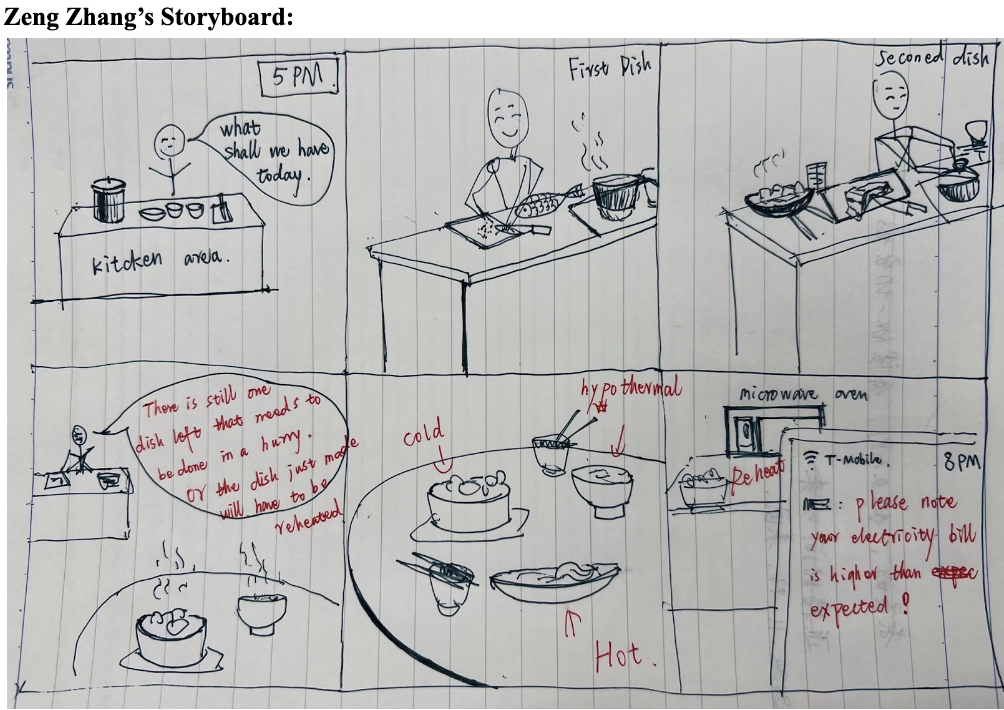 Zeng Zhang’s Storyboard:
5 PM
what
shall we have
today.
kitchen area.
First Dish
Seconed dish
There is still one
dish left that needs to
be done in a hurry.
or the dish just made
will have to be
reheated
cold
hypothermal
Hot.
microwave oven
Reheat
T-Mobile.
8PM
: please note
your electricity bill
is higher than
expected!